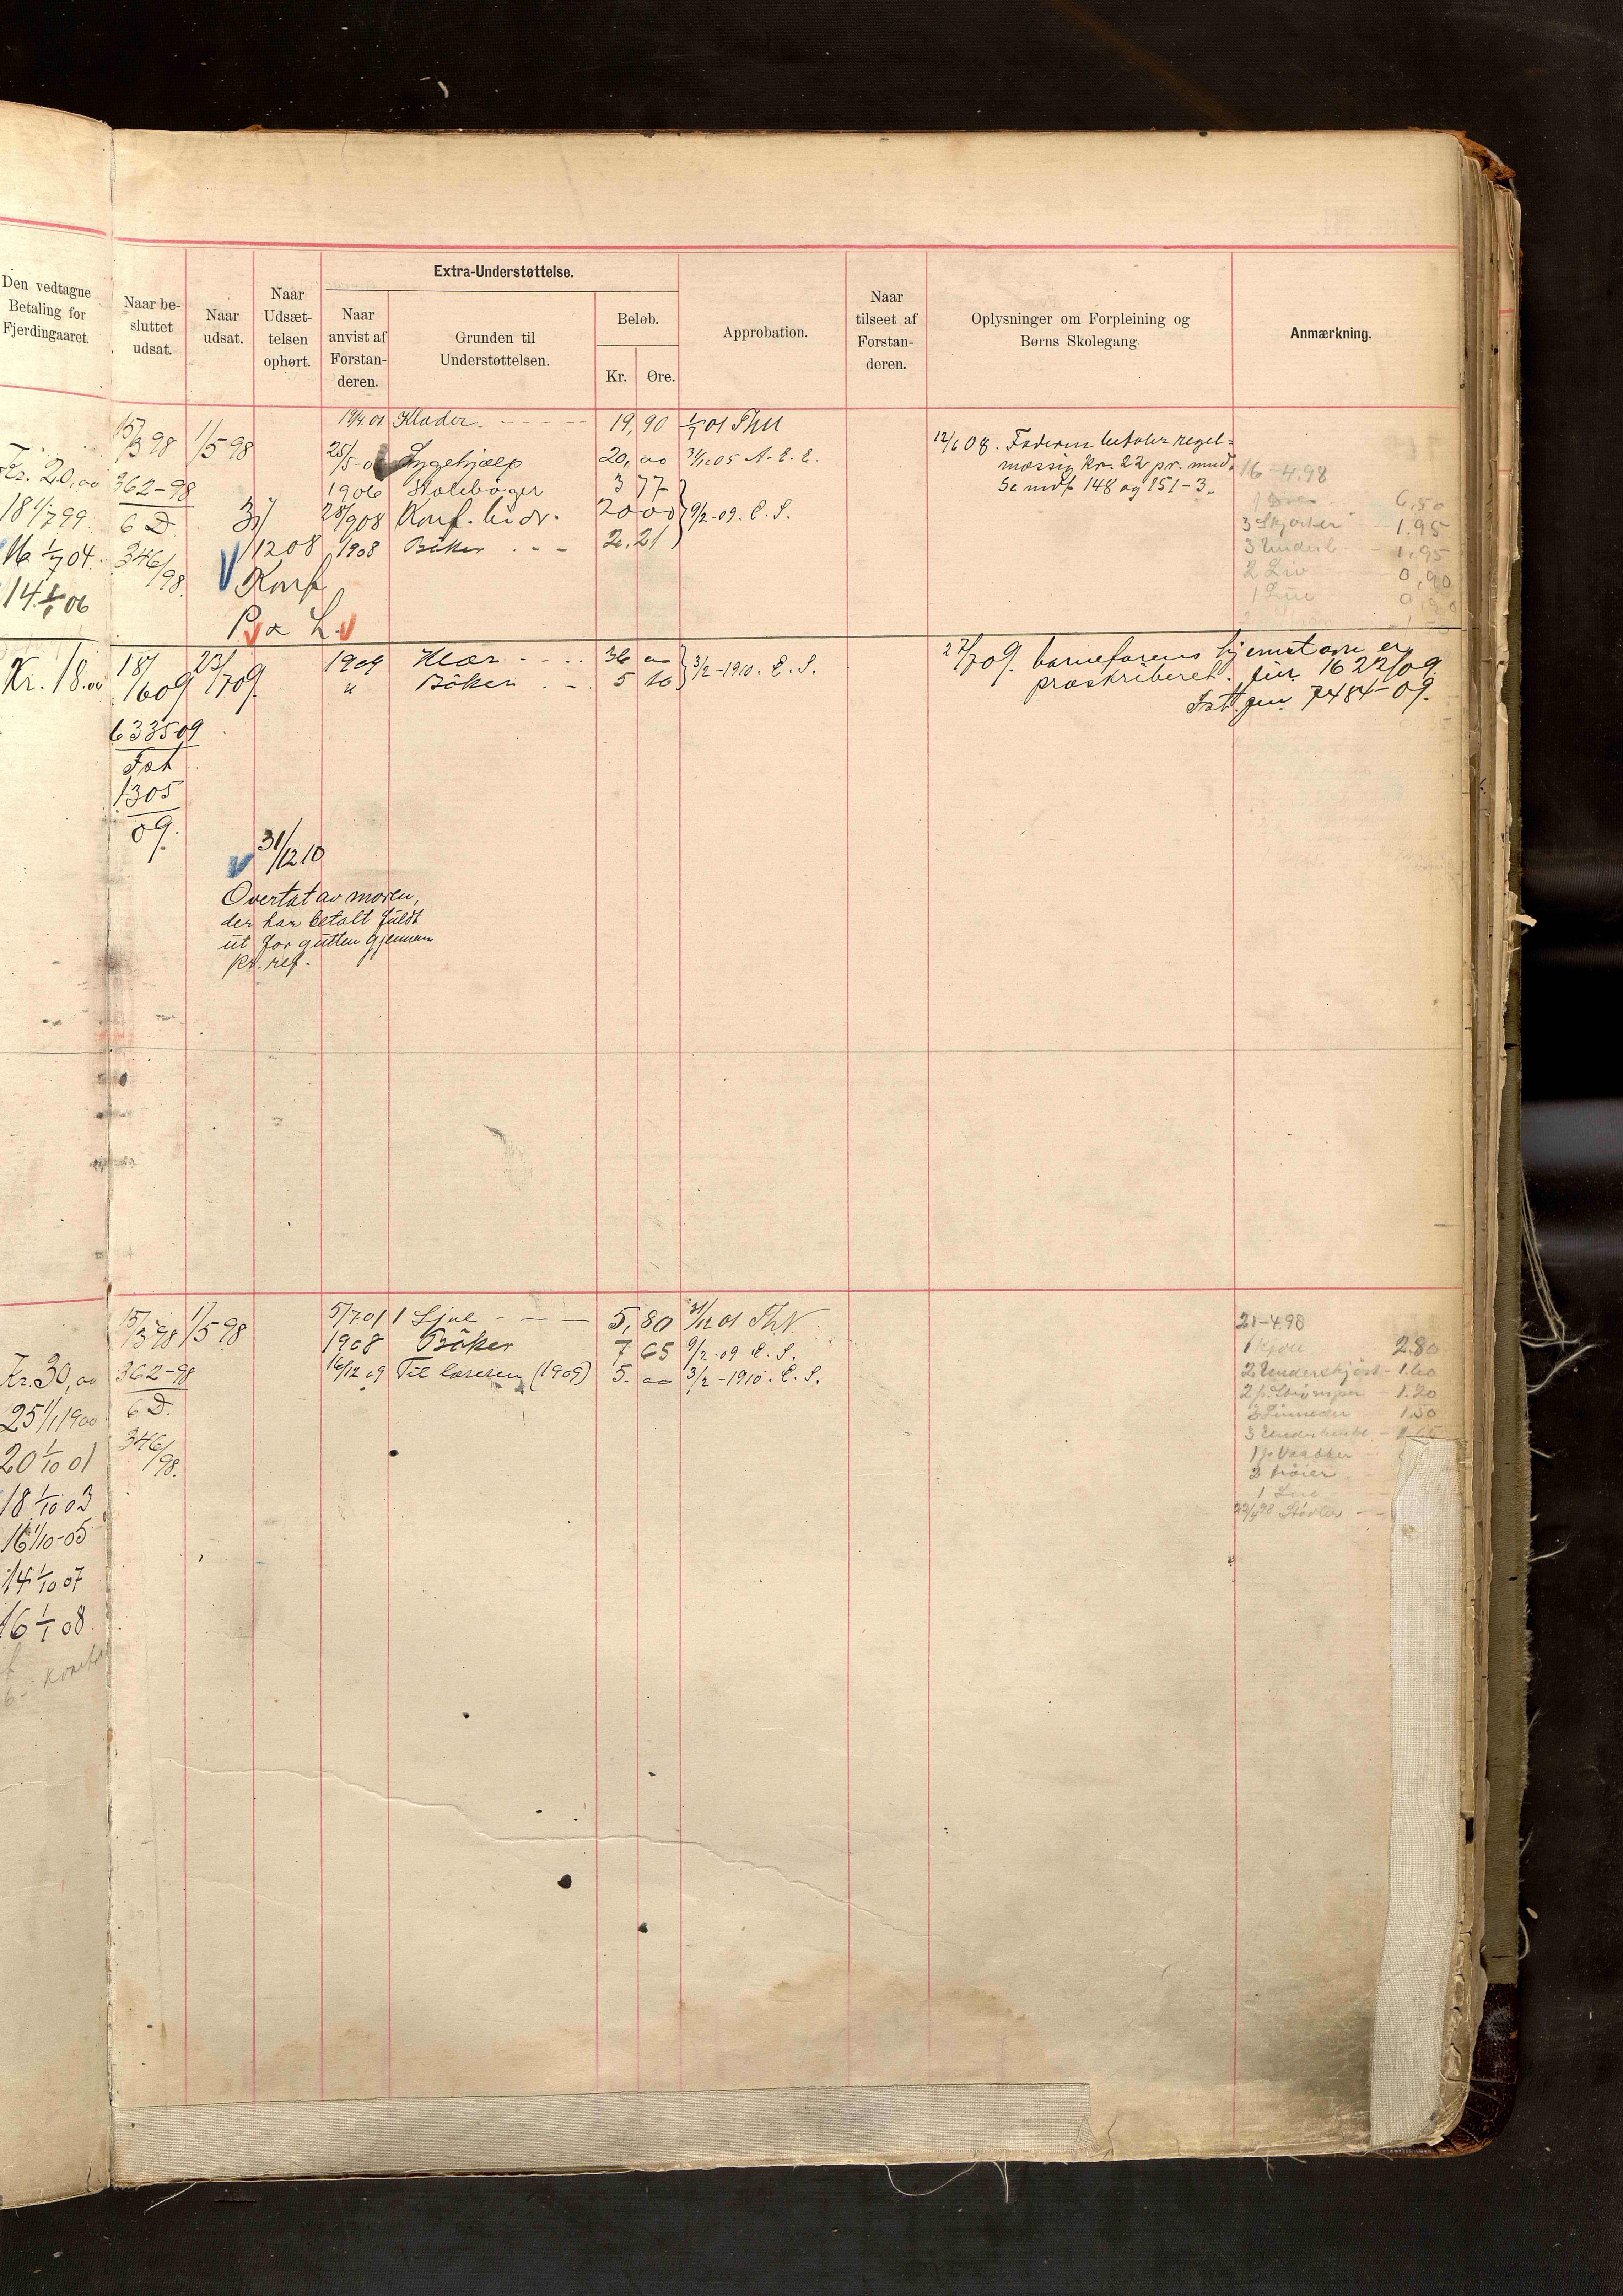 Den vedtagne
Betaling for
Fjerdingaaret.
Naar be-
sluttet
udsat.
Naar
udsat.
Naar
Udsæt-
telsen
ophørt.
Extra-Understøttelse.
Naar
anvist af
Forstan-
deren.
Grunden til
Understøttelsen.
Beløb.
Kr. Øre.
Approbation.
Naar
tilseet af
Forstan-
deren.
Oplysninger om Forpleining og
Børns Skolegang.
Anmærkning.
Kr. 20,00
18 1/7 99
16 1/7 04
14 1/1 06
15/3 98 1/5 98
362-98
6 D.
346/98.
31/12 08
Konf
19/4 01 Klæder 19,90 1/7 01
25/5-05 Lægehjælp 20,00 31/12 05 A. E. E.
1906 Skolebøger 3 77
28/9 08 Konf. bidr. 20 00 9/2-09. E. S.
1908 Bøker 2.21
12/6 08. Faderen betaler regel-
mæssig Kr. 22 pr. mnd.
Se mdf 148 og 151-3.
16-4.98
6,50
3 Skjorter 1.95
3 Underb. 1.95
2 Liv 0,90
1 Lue
Kr. 18.00
18/6 09 23/7 09.
6335 09
Fat
1305
09.
1909 Klær 36 00
" Bøker 5 10 3/2-1910. E. S.
27/7 09. barnefarens hjemstavn er
præskriberet. jur. 1622/09.
Fatt. jur. 7484-09.
31/12 10
Overtat av moren,
der har betalt fuldt
ut for gutten gjennem
kr. ref.
Kr. 30,00
25 1/1 1900
20 1/10 01
18 1/10 03
16 1/10-05
14 1/10 07
16 1/1 08.
15/3 98 1/5 98
362-98
6 D.
346/98.
5/7 01 1 Kjole 5,80 31/12 01
1908 Bøker 7 65 9/2-09 E. S.
16/12 09 Til læreren (1909) 5. 00 3/2-1910. E. S.
21-4.98
1 Kjole 2.80
2 Underskjørt 1.60
2 p. Strømper 1.20
3 Linneder 1.50
3 Underbenkl.
1 p. Vanter
2 trøier
1 Lue
Støvler